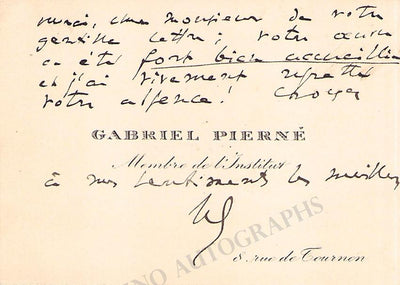 merci, cher monsieur de votre
gentille lettre ; votre œuvre
a été fort bien accueillie
et j'ai vivement regretté
votre absence ! Croyez
GABRIEL PIERNÉ
Membre de l'Institut
à mes sentiments les meilleurs
8, rue de Tournon
AUTOGRAPHS